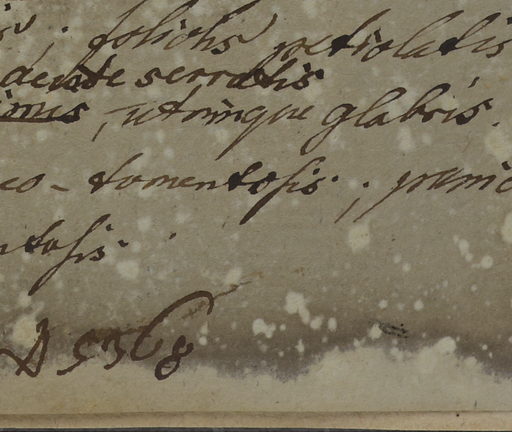 foliolis petiolatis
dente serratis
imis, utrinque glabris.
eo-tomentosis; pani
ntosis.
5568